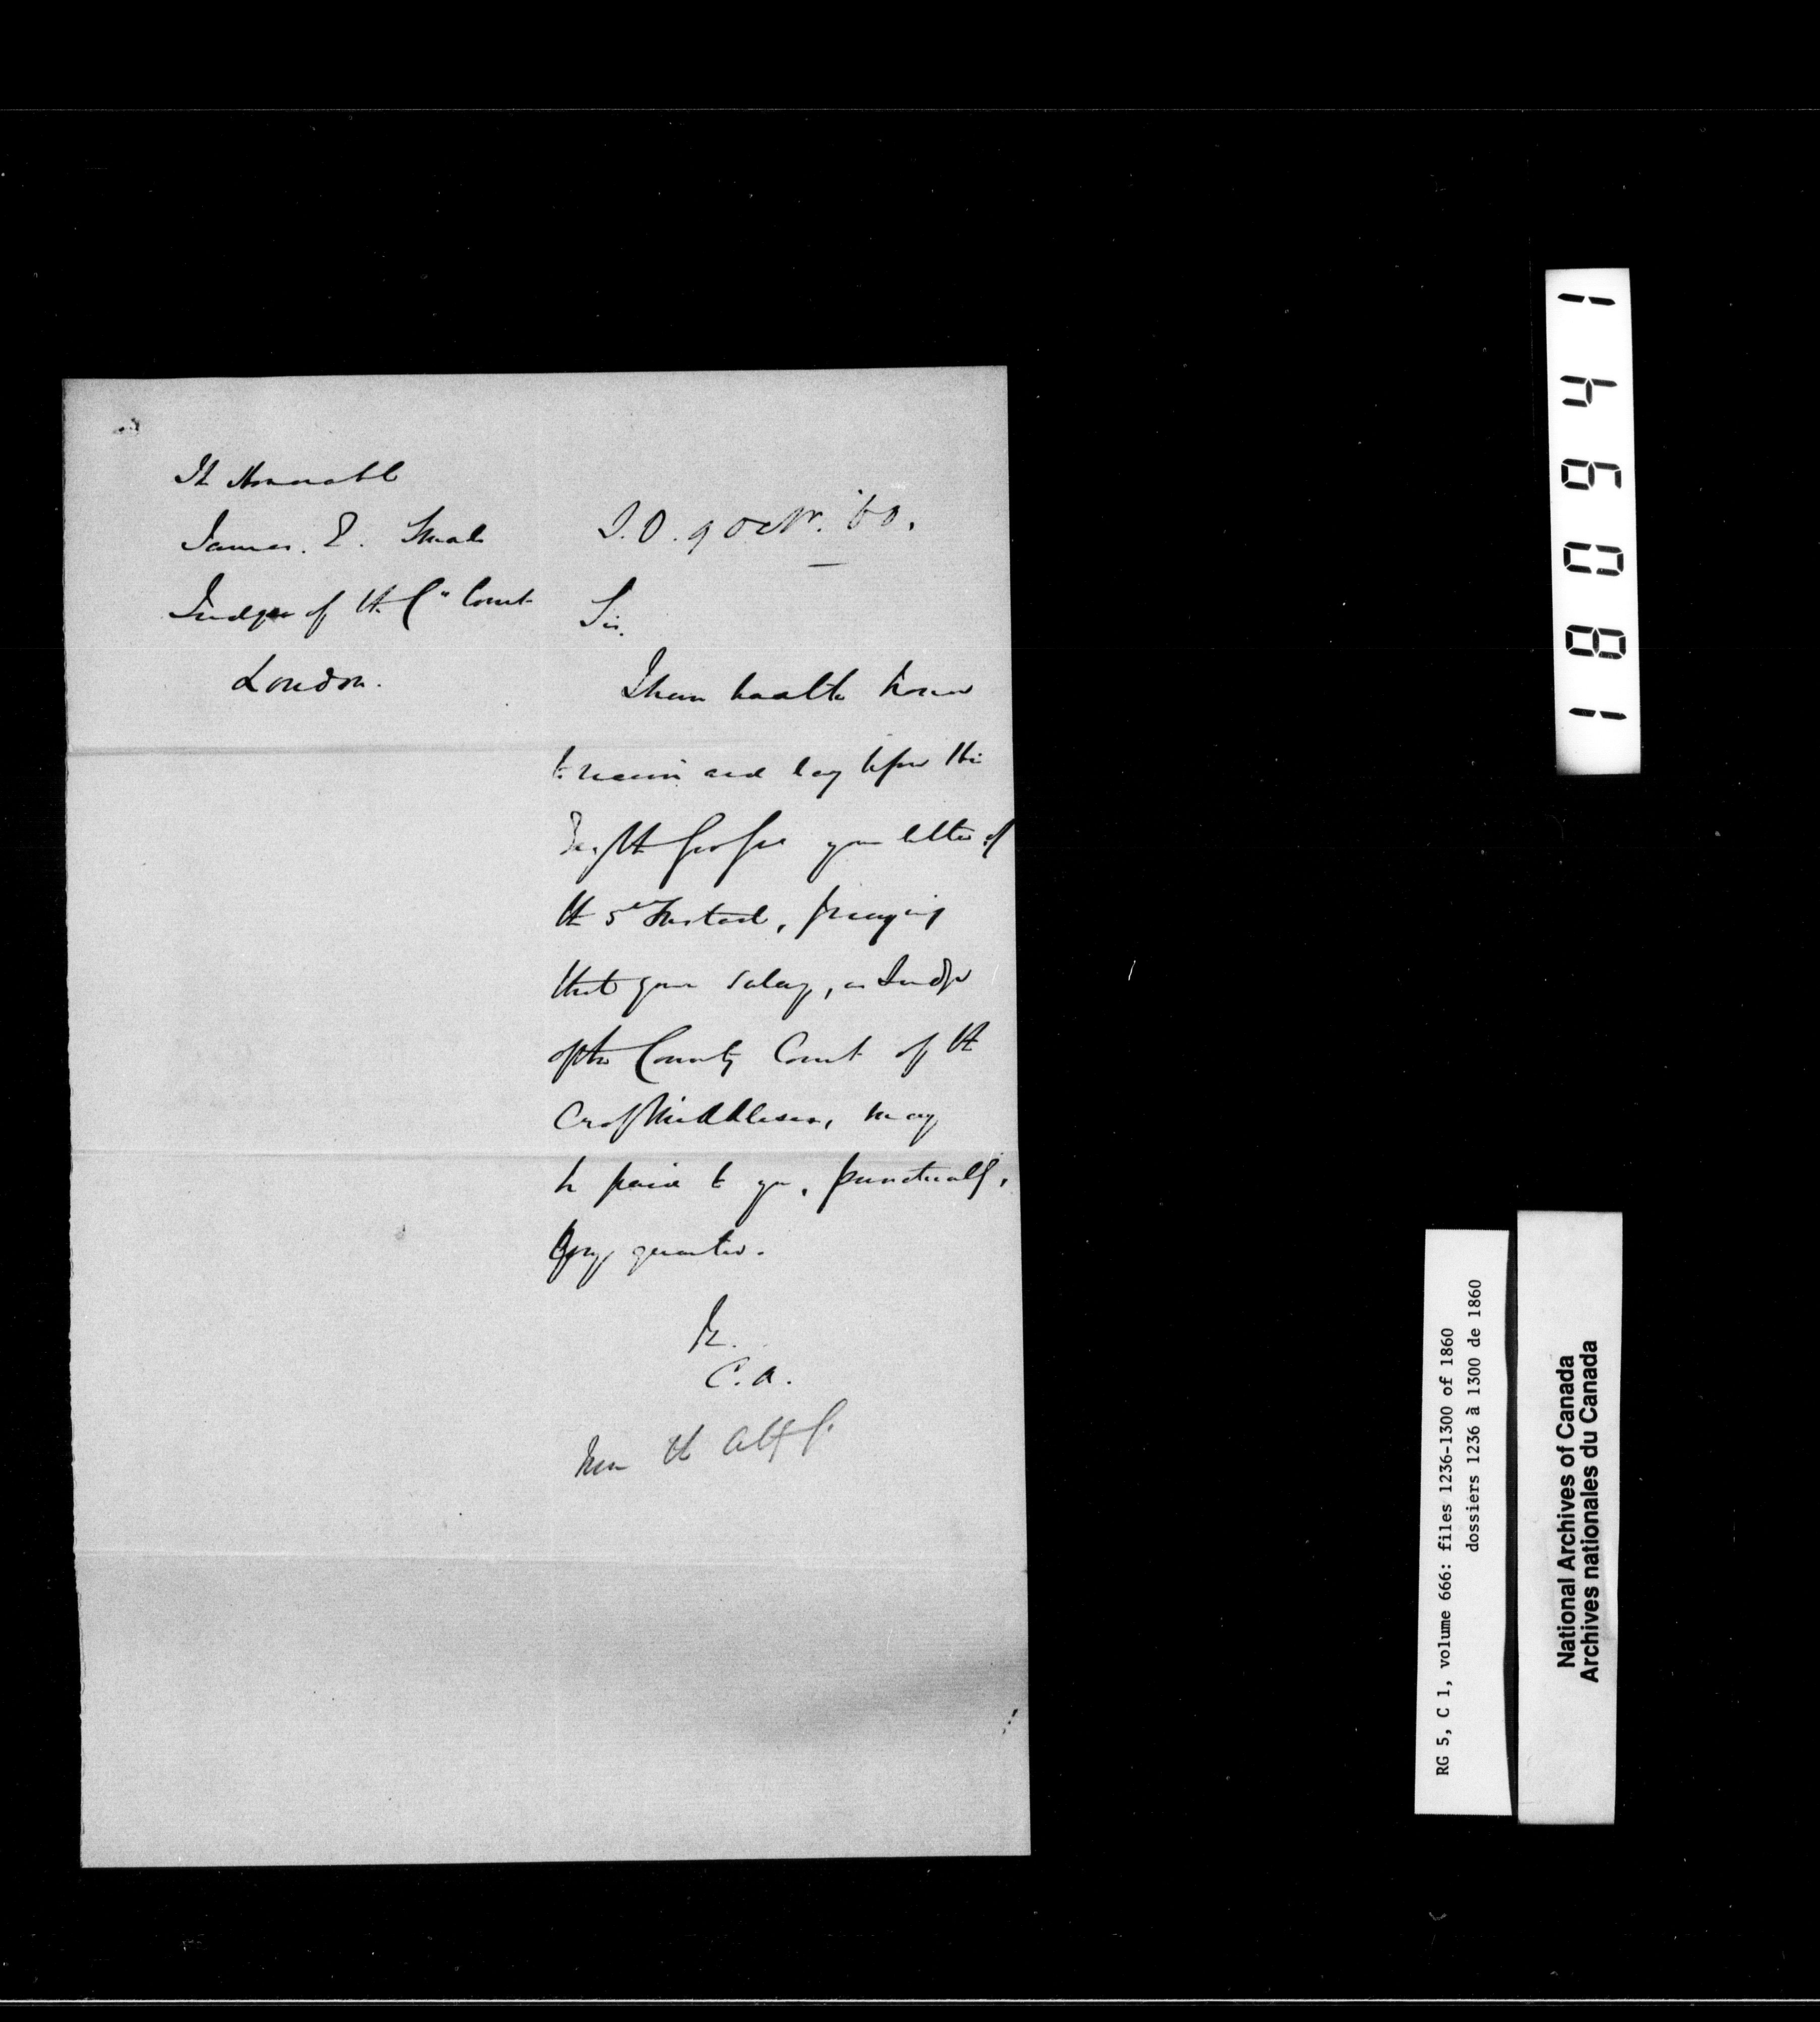 The Honorable
James. E. Small
Judge of the Co Court
London.
S.O. 9 Octbr. '60.
Sir.
I have had the honor
to receive and lay before His
your letter of
the 5th Instant, praying
that your salary, as Judge
of the County Court of the
Co of Middlesex, may
be paid to you, punctually,
every quarter.
C.A.
180941
RG 5, C 1, volume 666: files 1236-1300 of 1860
dossiers 1236 à 1300 de 1860
National Archives of Canada
Archives nationales du Canada